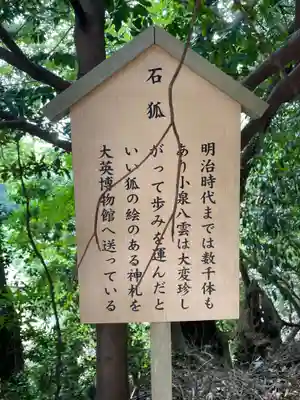 石狐
明治時代までは数千体も
あり小泉八雲は大変珍し
がって歩みを運んだと
いい狐の絵のある神札を
大英博物館へ送っている